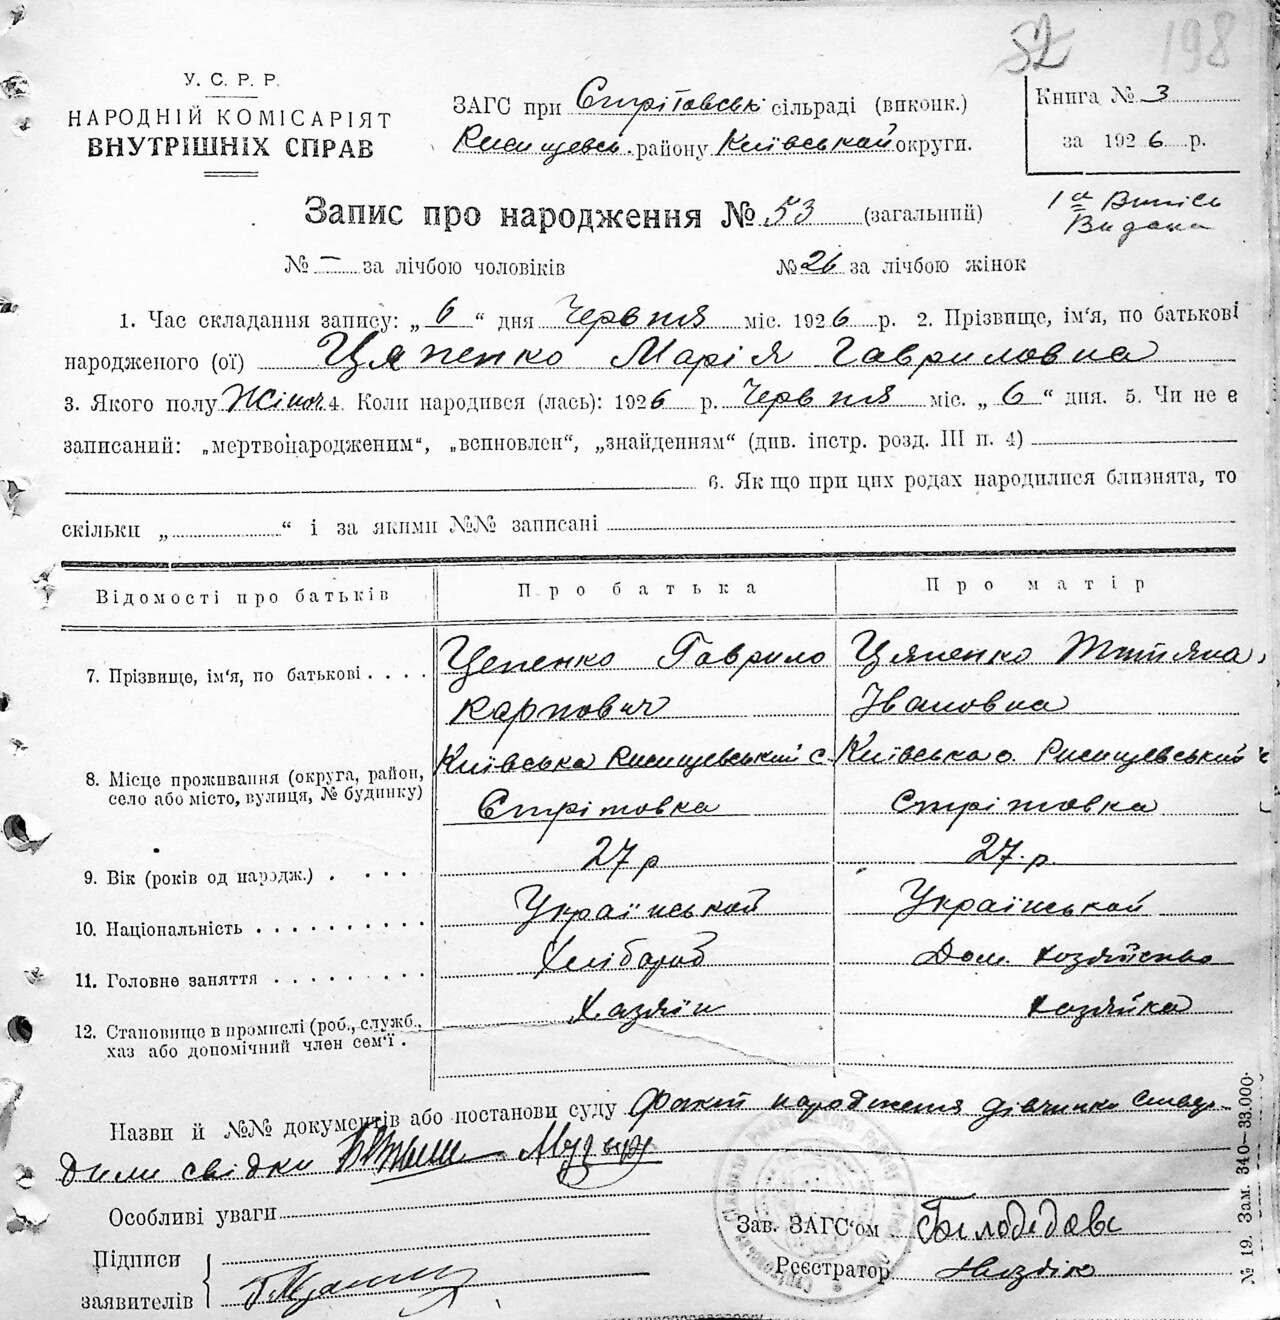 198
У. С. Р. Р.
НАРОДНІЙ КОМІСАРІЯТ
ВНУТРІШНІХ СПРАВ
ЗАГС при Стрітовські сільраді (виконк.)
Ржищевськ. району Київськой округи.
Книга № 3
за 1926 р.
1а Випись
Видана
Запис про народження № 53 (загальний)
№ – за лічбою чоловіків № 26 за лічбою жінок
1. Час складання запису: „ 6 “ дня Червня міс. 1926 р. 2. Прізвище, ім'я, по батькові
народженого (ої) Цяпенко Марія Гавриловна
3. Якого полу Жіноч. 4. Коли народився (лась): 1926 р. Червня міс. „ 6 “ дня. 5. Чи не є
записаний: „мертвонародженим“, „всиновлен“, „знайденням“ (див. інстр. розд. III п. 4)
6. Якщо при цих родах народилися близнята, то
скільки „ “ і за якими №№ записані
Відомості про батьків Про батька Про матір
7. Прізвище, ім'я, по батькові . . . . Цепенко Гаврило Цяпенко Тятяна
Карпович Івановна
8. Місце проживання (округа, район, Київська Ржищевський с. Київська о. Ржищевський
село або місто, вулиця, № будинку) Стрітовка Стрітовка
9. Вік (років од народж.) . . . . 27 р 27. р.
10. Національність . . . . . . . . . . Українськой Українськой
11. Головне заняття . . . . . . . Хлібороб Дом. хозяйство
12. Становище в промислі (роб., служб., Хазяїн хозяйка
хаз або допомічний член сем'ї .
Назви й №№ документів або постанови суду Факт народження дівчинки ствер-
дили свідки
Особливі уваги
Підписи
заявителів
Зав. ЗАГС'ом
Реєстратор
№ 19. Зам. 340—33.000.